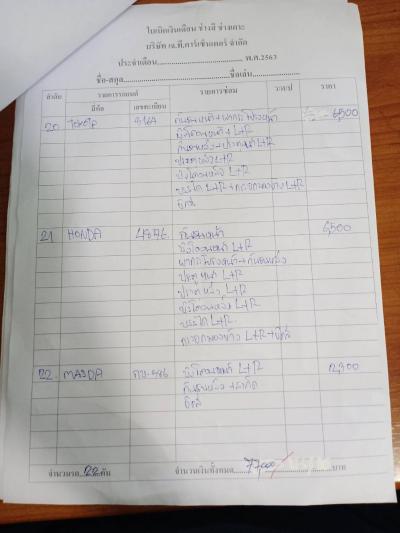 ใบเบิกเงินเดือน ช่างสี ช่างเคาะ
บริษัท เจ.ที.คาร์เซ็นเตอร์ จำกัด
ประจำเดือน.......................... พ.ศ.2563
ชื่อ-สกุล..........................ชื่อเล่น..........................
ลำดับ รายการรถยนต์ รายการซ่อม ว/ด/ป ราคา
ยี่ห้อ เลขทะเบียน
20 TOYOTA กันชนหน้า + ฝากระโปรงหน้า 6,500
บังโคลนหน้า L+R
กันชนหลัง + ประตูหน้า L+R
ประตูหลัง L+R
บังโคลนหลัง L+R
บันได L+R + กระจกมองข้าง L+R
21 HONDA กันชนหน้า 6,500
บังโคลนหน้า L+R
ฝากระโปรงหน้า + กันชนหลัง
ประตูหน้า L+R
ประตูหลัง L+R
บังโคลนหลัง L+R
บันได L+R
กระจกมองข้าง L+R
22 MAZDA บังโคลนหน้า L+R 2,300
กันชนหลัง
จำนวนรถ 22 คัน จำนวนเงินทั้งหมด บาท